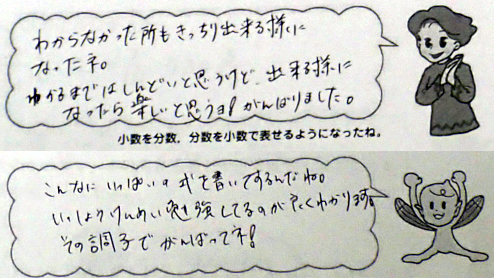 わからなかった所もきっちり出来る様に
なったネ。
わかるまではしんどいと思うけど、出来る様に
なったら楽しいと思うヨ!がんばりました。
小数を分数,分数を小数で表せるようになったね。
こんなにいっぱいの式を書いてするんだね。
いっしょうけんめい勉強してるのがよくわかります。
その調子でがんばってネ!